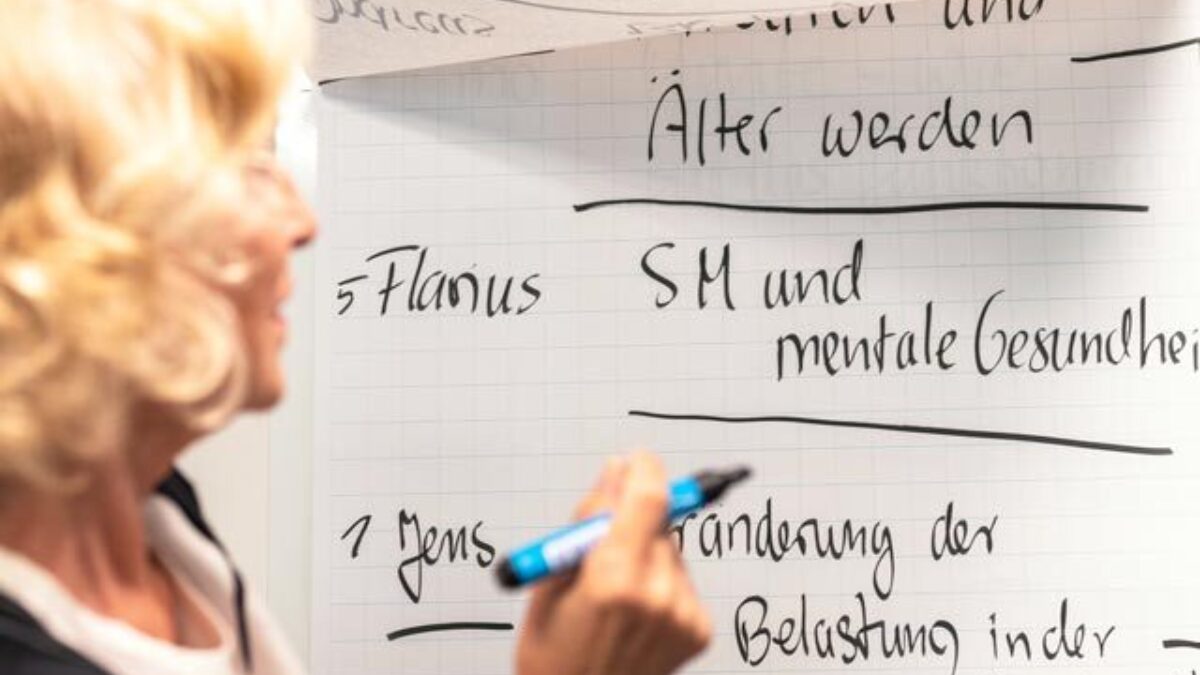 Andreas
und
Älter werden
5 Flavius SM und
mentale Gesundhei
1 Jens ränderung der
Belastung in der